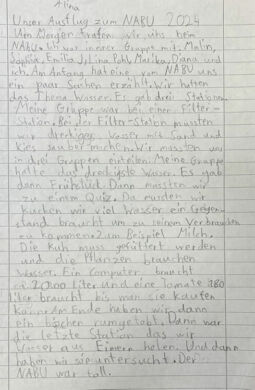 Alina
Unser Ausflug zum NABU 2024
Um Morgen trafen wir uns beim
NABU. Ich war in einer Gruppe mit: Malin,
Sophia, Emilia, Pohl, Marika, Diana und
ich. Am Anfang hat eine vom NABU uns
ein paar Sachen erzählt. Wir hatten
das Thema Wasser. Es gab drei Stationen.
Meine Gruppe war bei einer Filter-
Station. Bei der Filter-Station mussten
wir dreckiges Wasser mit Sand und
kies sauber machen. Wir mussten uns
in drei Gruppen einteilen. Meine Gruppe
hatte das dreckigste Wasser. Es gab
dann Frühstück. Dann mussten wir
zu einem Quiz. Da mussten wir
kucken wie viel Wasser ein Gegen-
stand braucht um zu seinem Verbrauchen
zu kommen. Zum Beispiel Milch.
Die Kuh muss gefüttert werden
und die Pflanzen brauchen
Wasser. Ein Computer braucht
ca. 20000 Liter und eine Tomate 180
Liter braucht bis man sie kaufen
kann. Am Ende haben wir dann
ein bischen rumgetobt. Dann war
die letzte Station das wir
Wasser aus Eimern holen. Und dann
haben wir sie untersucht. Der
NABU war toll.